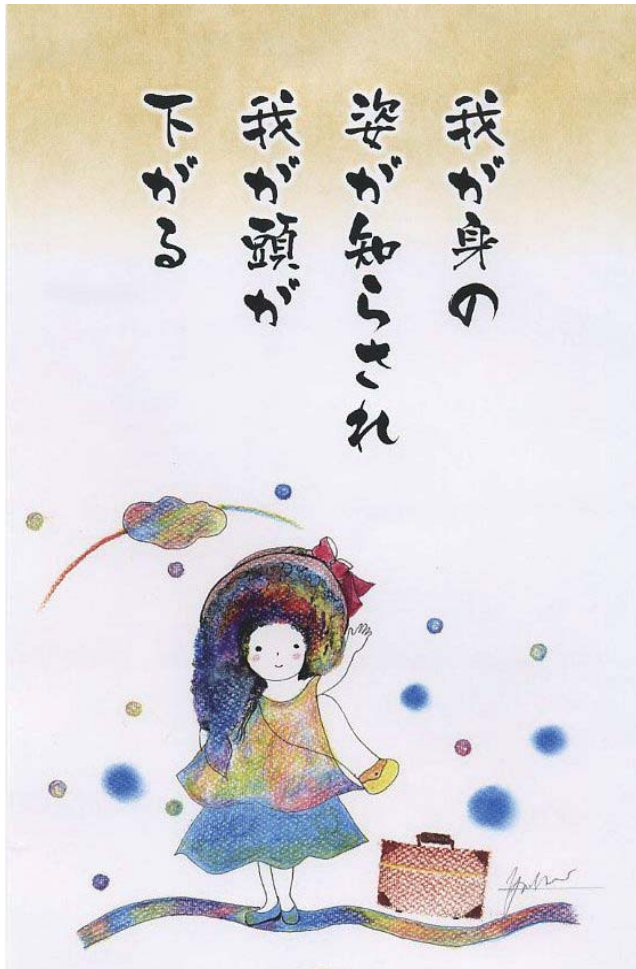 我が身の
姿が知らされ
我が頭が
下がる